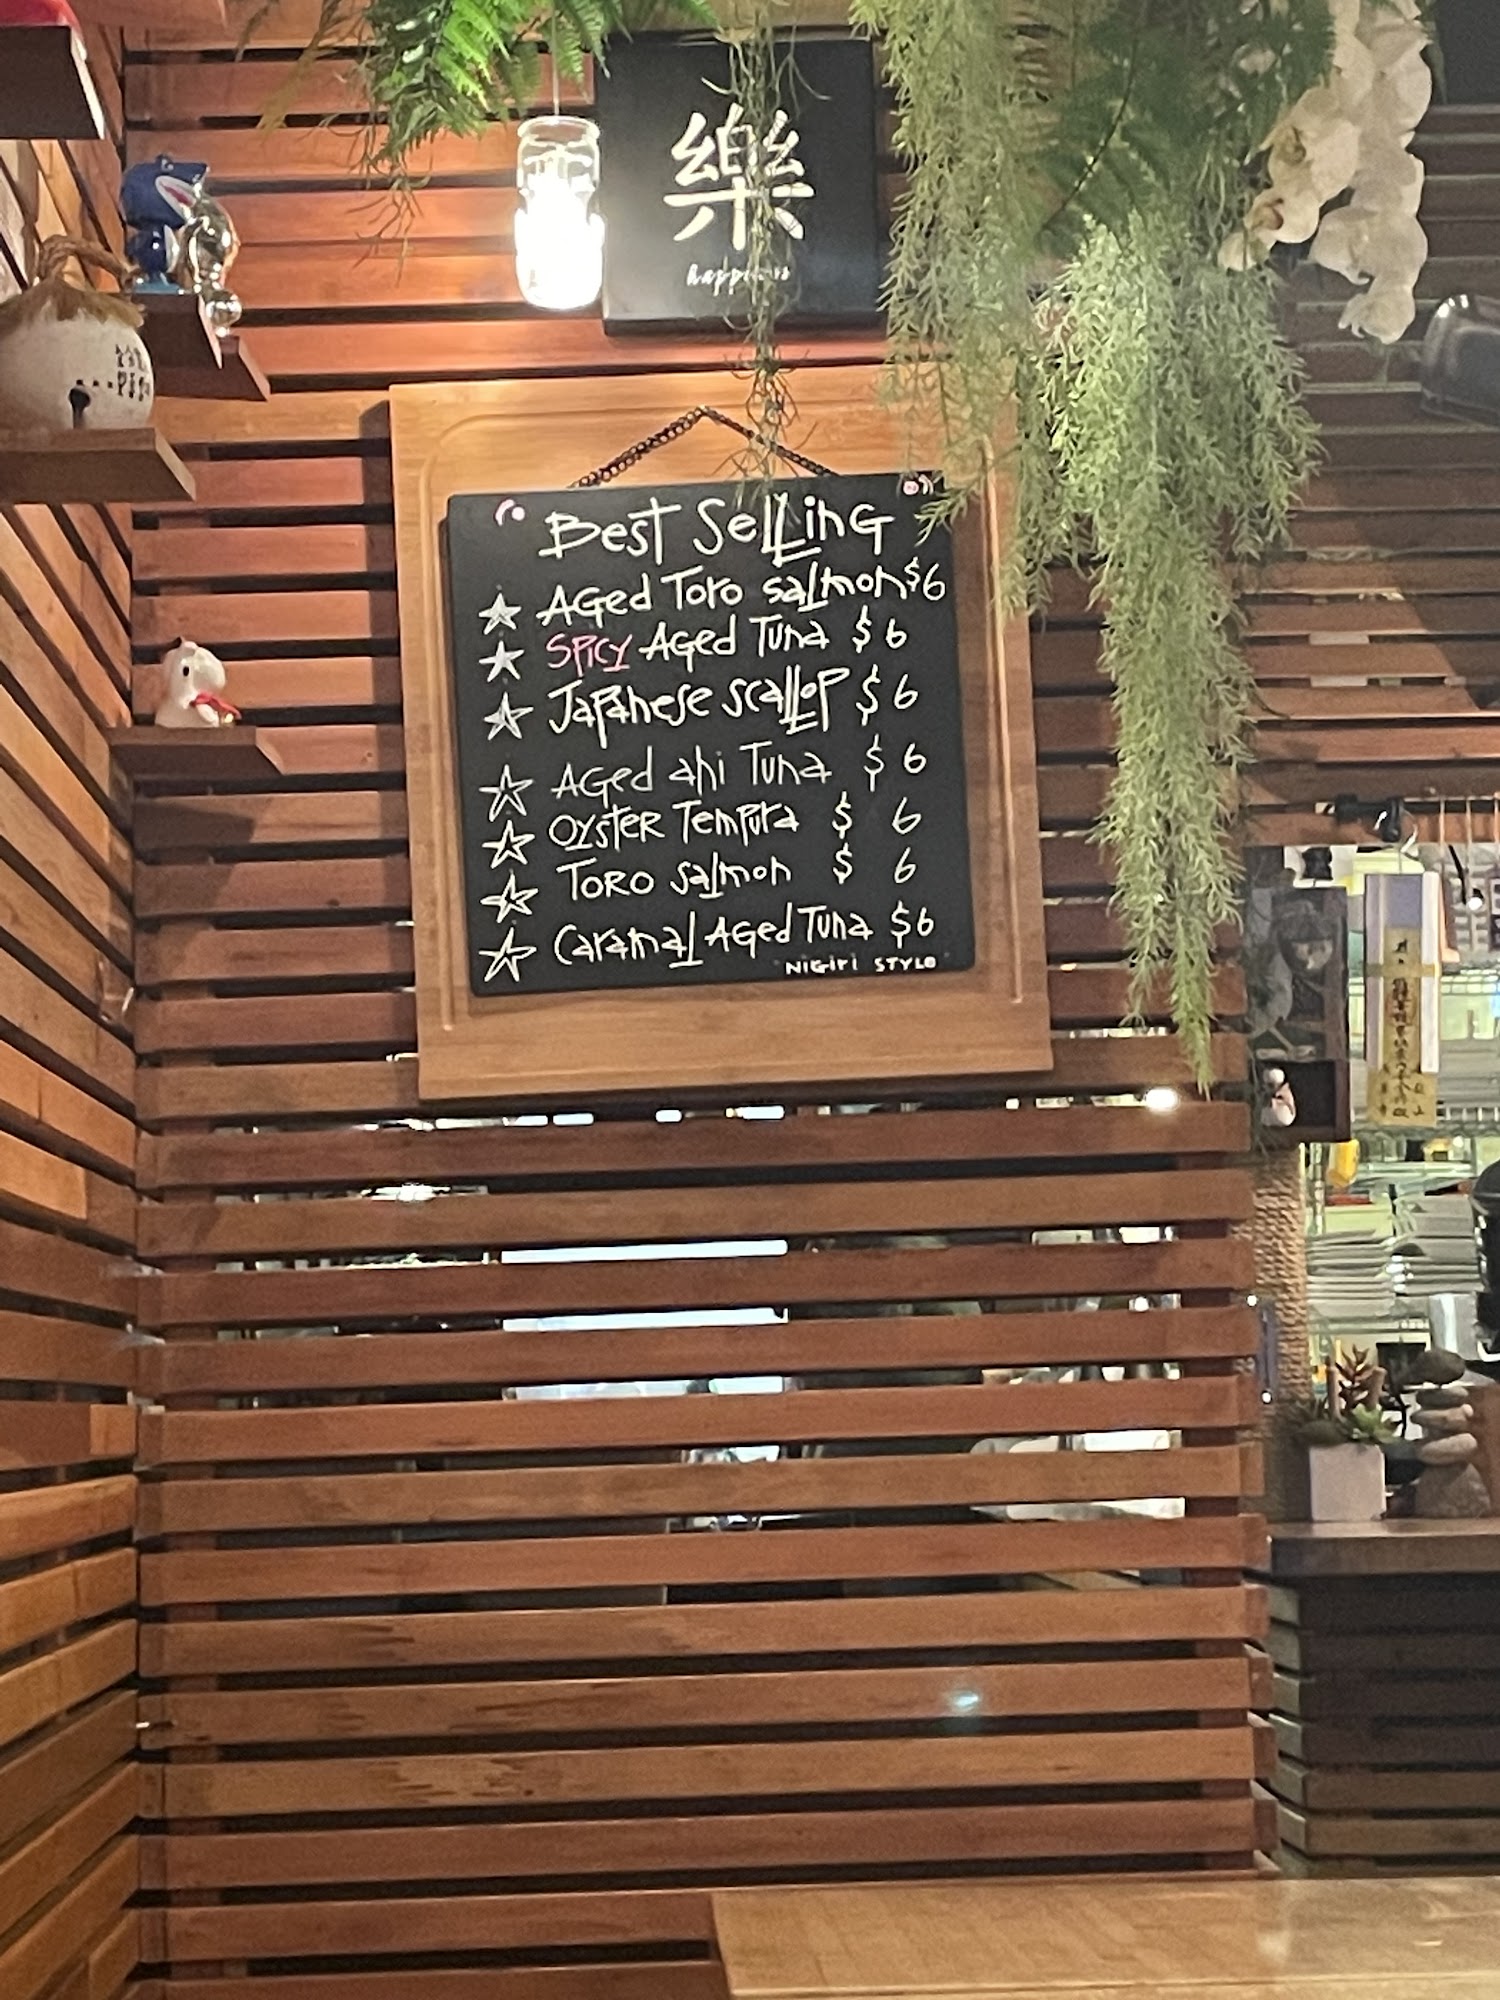 樂
happiness
Best Selling
Aged Toro salmon $6
SPICY Aged Tuna $6
Japanese scallop $6
Aged ahi Tuna $6
OYSTER Tempura $ 6
TORO salmon $ 6
Caramal Aged Tuna $6
NIGIRI STYLE